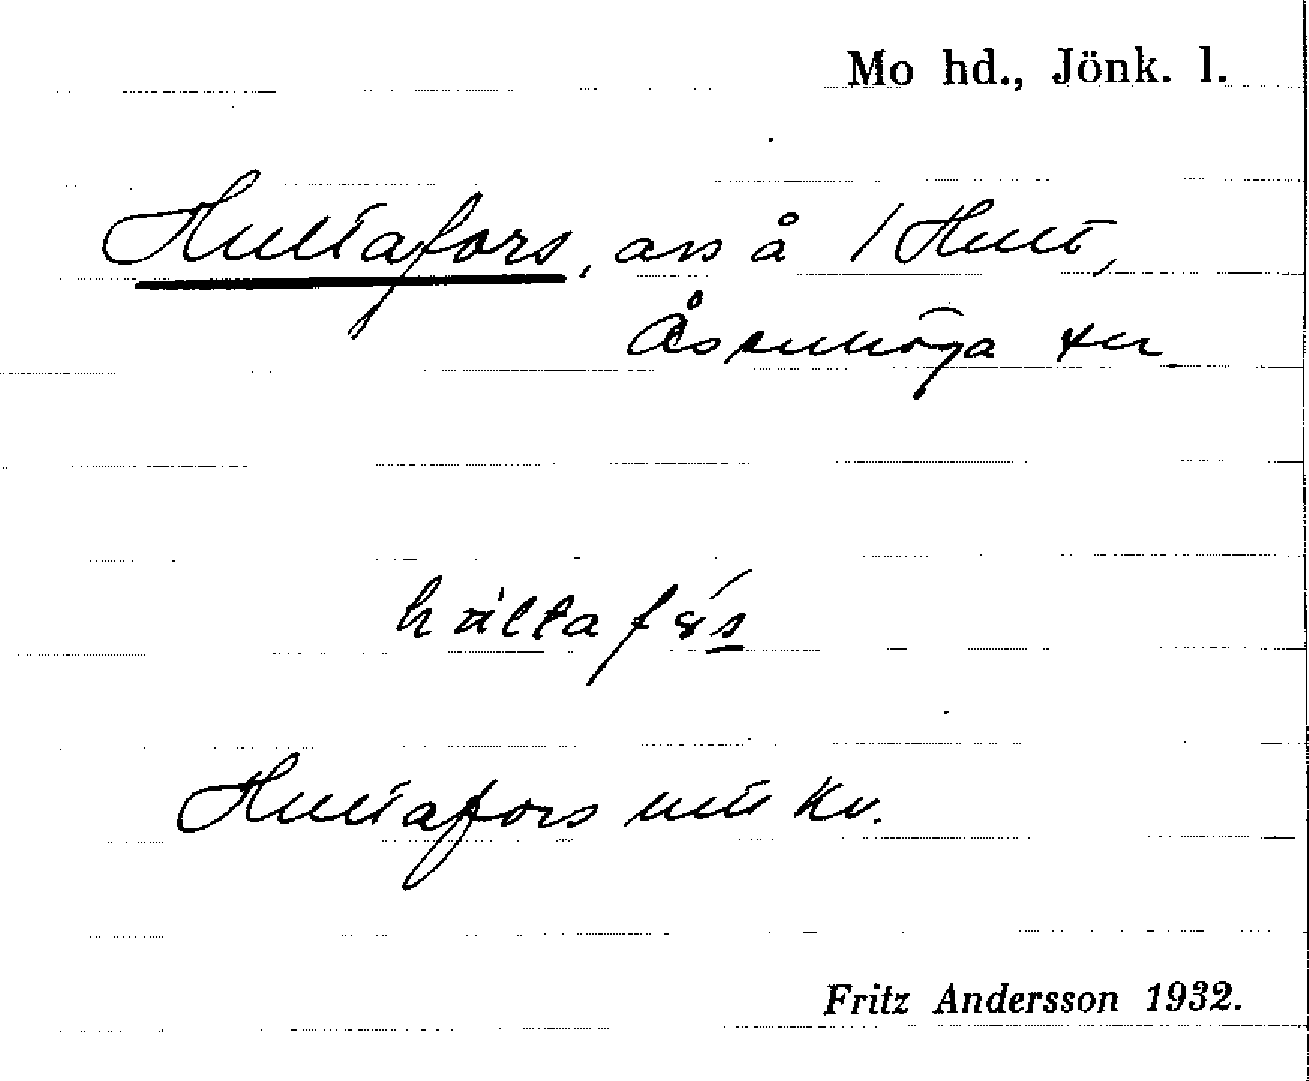 Mo hd., Jönk. l.
Hultafors, avs å 1 Hult,
Åsenhöga sn
Hultafors kv.
Fritz Andersson 1932.